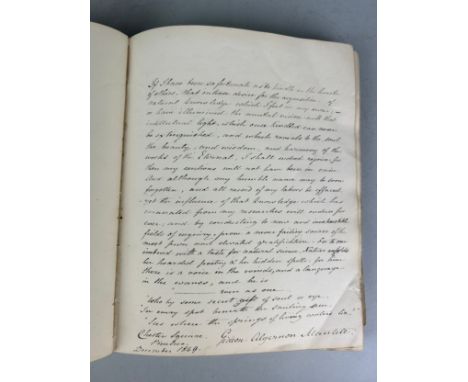 If I have been so fortunate as to kindle in the hearts
of others, that intense desire for the acquisition of
natural knowledge which I feel in my own; —
or have illumined the mental vision with that
intellectual light, which once kindled can never
be extinguished, and which reveals to the soul
the beauty, and wisdom, and harmony of the
works of the Eternal, I shall indeed rejoice, for
then my exertions will not have been in vain.
And although my humble name may be soon
forgotten, and all record of my labors be effaced,
yet the influence of that knowledge which has
emanated from my researches will endure for
ever, and by conducting to new and
fields of inquiry, prove a never failing source of the
most pure and elevated gratification. For to one
imbued with a taste for natural science Nature unfolds
her hoarded poetry & her hidden spells; for him
there is a voice in the winds, and a language
in the waves, and he is
even as one
"Who by some secret gift of soul or eye,
In every spot beneath the smiling sun
Sees where the springs of living waters lie."
Chester Square, Gideon Algernon Mantell.
Pimlico
December 1849